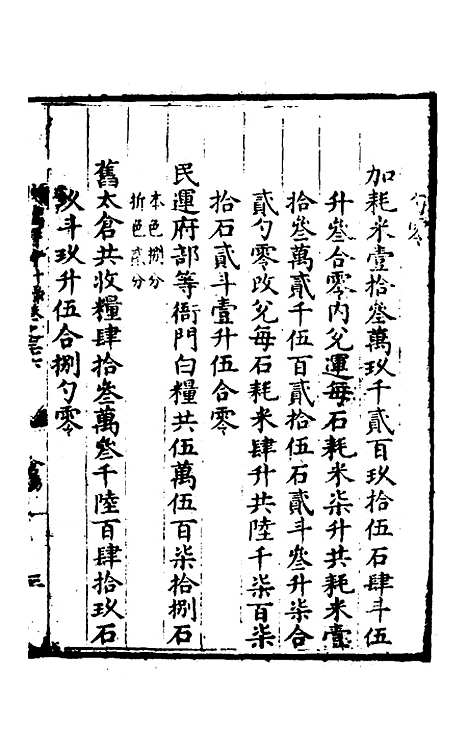 勺零
加耗米壹拾叄萬玖千貳百玖拾伍石肆斗伍
升叄合零內兌運每石耗米柒升共耗米壹
拾叄萬貳千伍百貳拾伍石貳斗叄升柒合
貳勺零改兌每石耗米肆升共陸千柒百柒
拾石貳斗壹升伍合零
民運府部等衙門白糧共伍萬伍百柒拾捌石
本色捌分
折色貳分
舊太倉共收糧肆拾叄萬叄千陸百肆拾玖石
玖斗玖升伍合捌勺零